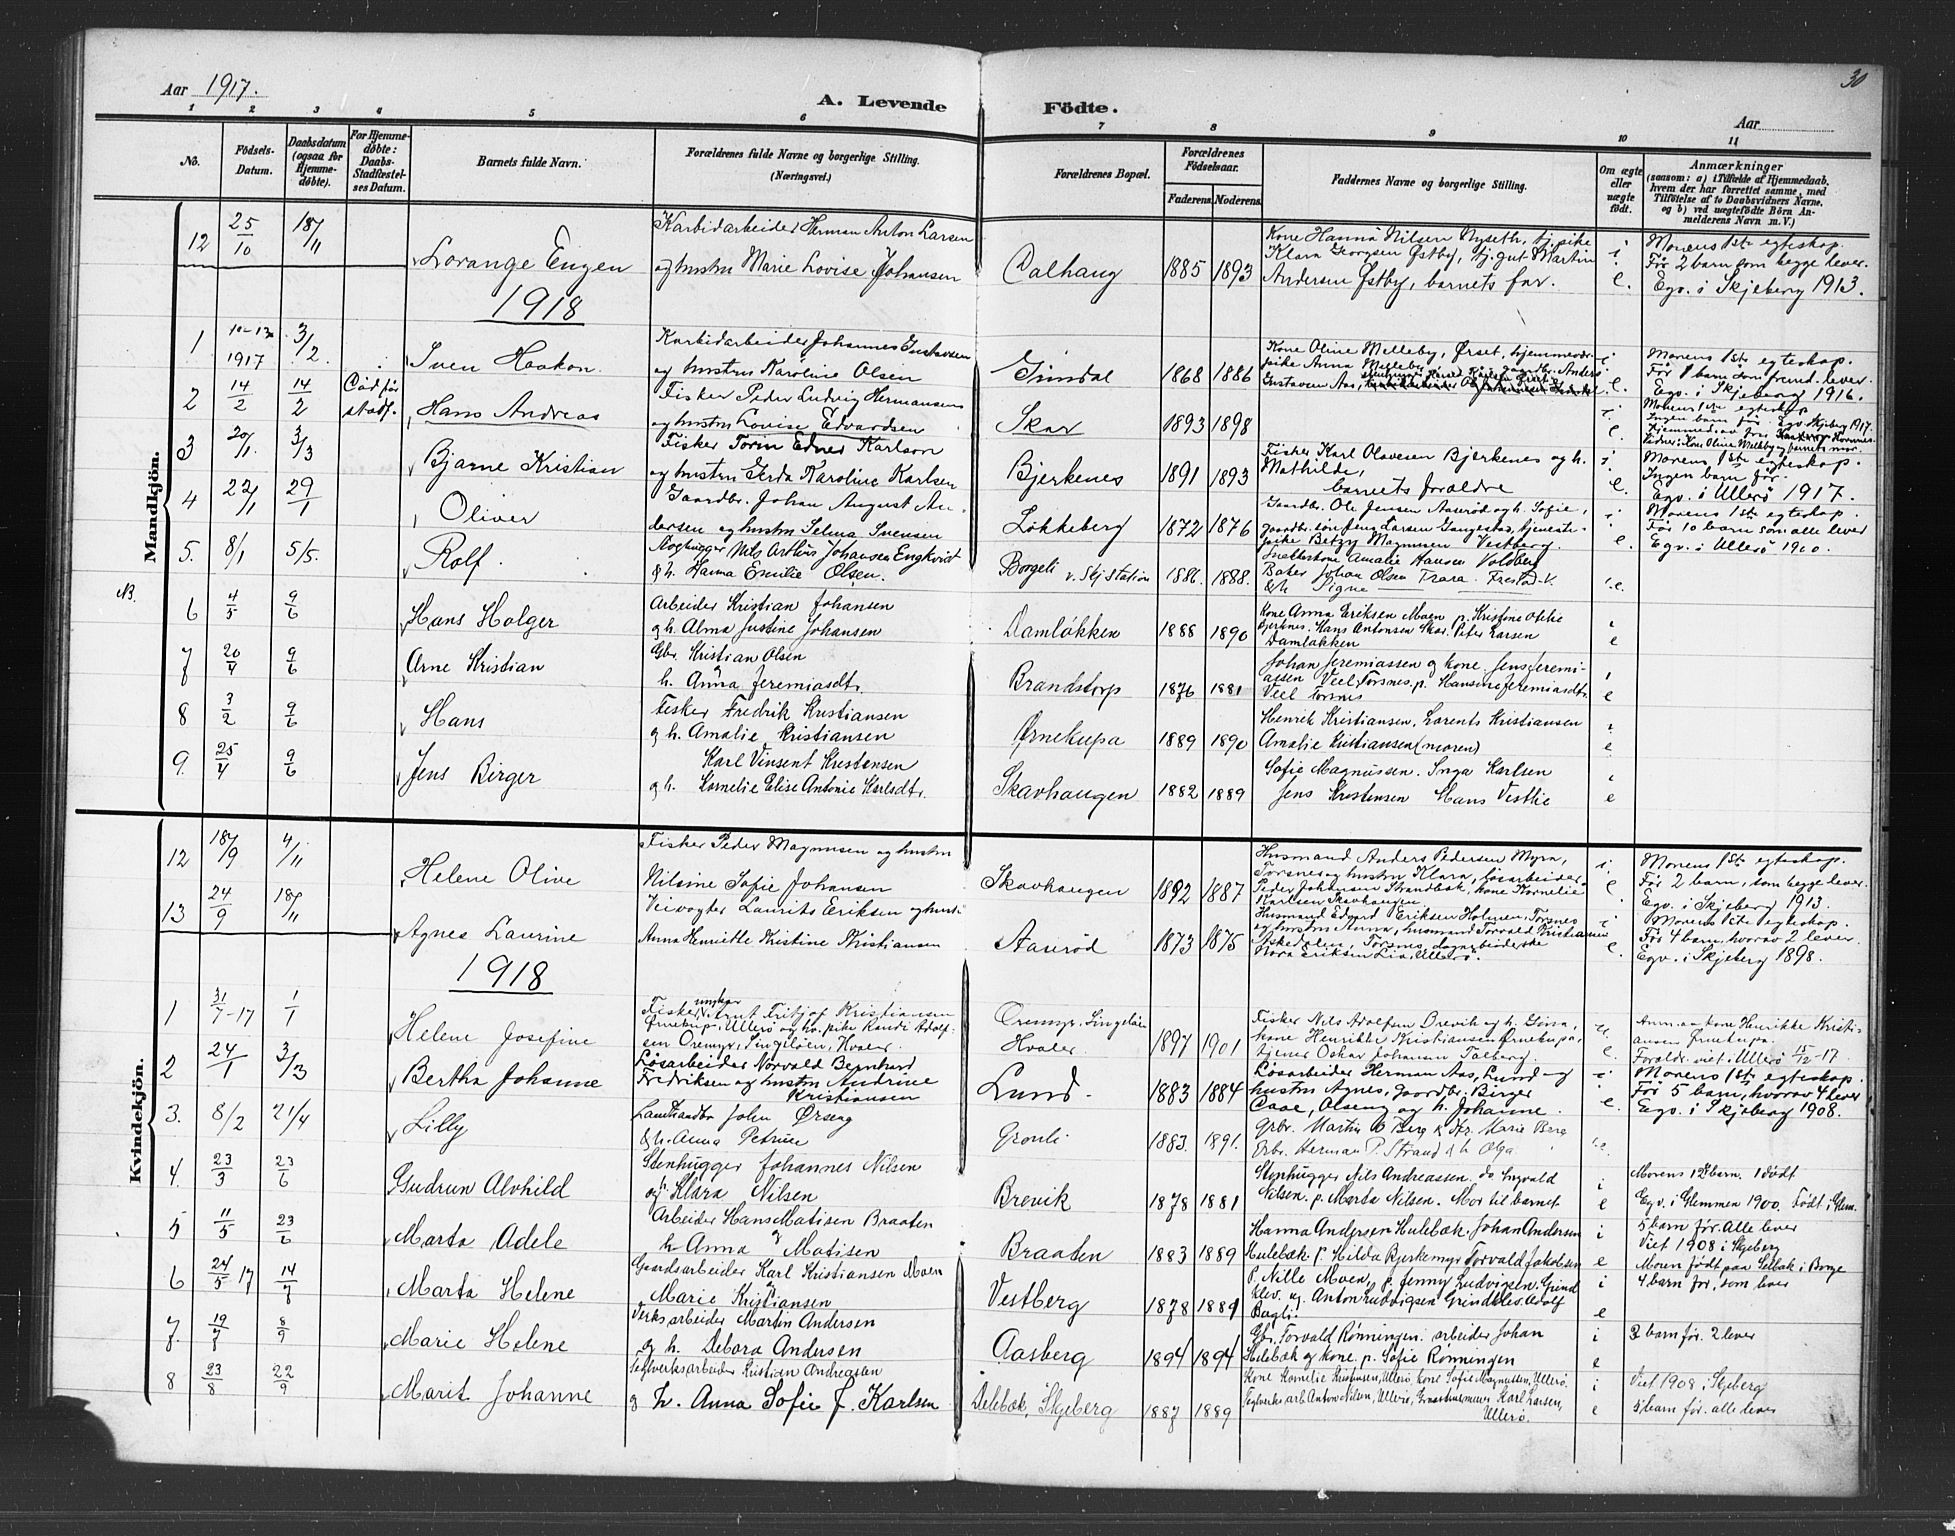 30
Aar 1917.
A. Levende Födte.
Aar
1 2 3 4 5 6 7 8 9 10 11
No.
Födsels-Datum.
Daabsdatum (ogsaa for Hjemme-døbte).
For Hjemme-døbte: Daabs-Stadfæstel-ses Datum.
Barnets fulde Navn.
Forældrenes fulde Navne og borgerlige Stilling.
(Næringsvei.)
Forældrenes Bopæl.
Forældrenes Födselsaar.
Faderens. Moderens.
Faddernes Navne og borgerlige Stilling.
Om ægte eller uægte födt.
Anmærkninger
(saasom: a) i Tilfælde af Hjemmedaab,
hvem der har forrettet samme, med
Tilföielse af to Daabsvidners Navne,
og b) ved uægtefödte Börn An-
melderens Navn m. V.)
Mandkjön.
12 25/10 18/11 Lorange Eugen
Karbidarbeider Herman Anton Larsen
og hustru Marie Lovise Johansen
Calhaug 1885 1893
Kone Hanna Nilsen Nyseth, tj. pike
Klara Georgsen Østby, tj. gut Martin
Andersen Østby, barnets far.
Morens 1ste egteskap.
Før 2 barn som begge lever.
Egv. i Skjeberg 1913.
1918
1 1917 3/2 Sven Haakon
Karbidarbeider Johannes Gustavsen
og hustru Karoline Olsen
Grimdal 1868 1886
Kone Oline Melleby, Ørset, hjemmevær.
pike Anna Melleby
Gustavsen Aas,
Morens 1ste egteskap.
Før 1 barn som fremd. lever.
Egv. i Skjeberg 1916.
2 14/2 14/2 Død før stadf. Hans Andreas
Fisker Peder Ludvig Hermansen
og hustru Lovise Edvardsen
Skar 1893 1898
Morens 1ste egteskap
Ingen barn før. Egv. Skjeberg 1917.
3 20/1 3/3 Bjarne Kristian
Fisker Torin Edner Karlson
og hustru Gerda Karoline Karlsen
Bjerkenes 1891 1893
Fisker Karl Olavesen Bjerkenes og h.
Mathilde,
barnets foraldre
Morens 1ste egteskap.
Ingen barn før.
Egv. i Ullerø 1917.
4 22/1 29/1 Oliver
Gaardbr. Johan August An-
dersen og hustru Selma Svensen
Løkkeberg 1872 1876
Gaardbr. Ole Jensen Aaserød og h. Sofie,
gaardbr. søn Jens Larsen Gangestad, tjeneste-
pike Betzy Magnussen Vestberg.
Morens 1ste egteskap.
Før 10 barn som alle lever
Egv. i Ullerø 1900.
5. 8/1 5/5. Rolf.
Skoghugger Nils Arthur Johansen Engkvist
& h. Hanna Emilie Olsen.
Borgeli v. Skj. Station 1886. 1888.
Snekkerkone Amalie Hansen Voldberg
Baker Johan Olsen Trara. Frestad. V.
& h Signe
N.
6 4/5 9/6 Hans Holger
Arbeider Kristian Johansen
og h. Alma Justine Johansen
Damløkken 1888 1890
Kone Anna Eriksen Moen p. Kristine Otilie
Bjerknes. Hans Antonsen Skar. Peter Larsen
Damløkken
7 20/4 9/6 Arne Kristian
Gbr. Kristian Olsen
h. Anna Jeremiasdtr.
Brandstorp 1876 1881
Johan Jeremiassen og kone. Jens Jeremi-
assen Veel Torsnes. p. Hansine Jeremiasdtr.
Veel Torsnes
8 3/2 9/6 Hans
Fisker Fredrik Kristiansen
og h. Amalie Kristiansen
Ørnekupa 1889 1890
Henrik Kristiansen, Lorents Kristiansen
Amalie Kristiansen (moren)
9. 25/4 9/6 Jens Birger
Karl Vinsent Kristensen
og h. Kornelie Elise Antonie Karlsdtr.
Skavhaugen 1882 1889
Sofie Magnussen. Inga Karlsen
Jens Kristensen Hans Vestlie
Kvindekjön.
12 18/9 4/11 Helene Olive
Fisker Peder Magnussen og hustru
Nilsine Sofie Johansen
Skavhaugen 1892 1887
Husmand Anders Pedersen Myra,
Torsnes og hustru Klara, løsarbeider
Peder Johansen Strandbak, kone Kornelie
Karlsen Skavhaugen.
Morens 1ste egteskap.
Før 2 barn, som begge lever.
Egv. i Skjeberg 1913.
13 24/9 18/11 Agnes Laurine
Veivogter Laurits Eriksen og hustr.
Anna Henriette Kristine Kristiansen
Aaserød 1873 1875
Husmand Edvard Eriksen Holmen, Torsnes
og hustru Anna, husmand Torvald Kristiansen
Askedalen, Torsnes, dagarbeiderske
Nora Eriksen Lia, Ullerø.
Morens 1ste egteskap.
Før 4 barn, hvorav 2 lever.
Egv. i Skjeberg 1898.
1918
1 31/7-17 1/1 Helene Josefine
Fisker, ungkar Arnt Fritjof Kristiansen
Ørnekup. Ullerø og hv. pike Randi Adolf-
sen Oremyr, Singeløen, Hvaler.
Oremyr. Singeløen Hvaler 1897 1901
Fisker Nils Adolfsen Brevik og h. Gina,
kone Henrikke Kristiansen Ørnekupa,
tjener Oskar Johansen Talberg.
Anm. av kone Henrikke Kristi-
ansen Ørnekupa.
Foraldr. viet i Ullerø 15/12-17.
2 24/1 3/3 Bertha Johanne
Løsarbeider Norvald Bernhard
Fredriksen og hustru Andrine
Kristiansen
Lund. 1883 1884
Løsarbeider Herman Aas, Lund og
hustru Agnes, gaardbr. Birger
Caae, Olseng og h. Johanne.
Morens 1ste egteskap.
Før 5 barn, hvorav 4 lever
Egv. i Skjeberg 1908.
3. 8/2 21/4 Lilly
Landhandler John Ørseng
& h. Anna Petrine
Gronli 1883. 1891.
Grbr. Martin O Berg & Fr. Marie Berg
Grbr. Herman P. Strand & h Olga
4. 23/3 23/6 Gudrun Alvhild
Stenhugger Johannes Nilsen
og h. Klara Nilsen
Brevik 1878 1881
Stenhugger Nils Andreassen. do Ingvald
Nilsen. p. Marta Nilsen. Mor til barnet
Morens 12te barn. 1 dødt
Egv. i Glemmen 1900. Født i Glem.
5 11/5 23/6 Marta Adele
Arbeider Hans Matisen Braaten
h. Anna Matisen
Braaten 1883 1889
Hanna Andersen Hulebæk. Johan Andersen
Hulebæk p. Hilda Bjerkemyr Torvald Jakobsen
5 barn før. Alle lever
Viet 1908 i Skjeberg
Moren født paa Selbak i Borge
6 24/5 17 14/7 Marta Helene
Gaardsarbeider Karl Kristiansen Moen
Marie Kristiansen
Vestberg 1878 1889
p. Nille Moen, p. Jenny Ludvigsen. Grind
klev. g. Anton Ludvigsen Grindklev. Adolf
Bøgli.
4 barn før, som lever
7. 19/7 8/9 Marie Helene
Verksarbeider Martin Andersen
og h. Debora Andersen
Aasberg 1894 1894
Gbr. Torvald Rønningen. arbeider Johan
Hulebæk og kone. p. Sofie Rønningen
3 barn før. 2 lever
8 23/8 22/9 Marit Johanne
Teglverksarbeider Kristian Andreassen
og h. Anna Sofie J. Karlsen
Dalebæk, Skjeberg 1887 1889
Kone Kornelie Kristensen, Ullerø, kone Sofie Magnussen, Ullerø.
Teglverksarb. Anton Nilsen, Ullerø, Karl Larsen,
Ullerø.
Viet 1908 i Skjeberg
5 barn før. alle lever